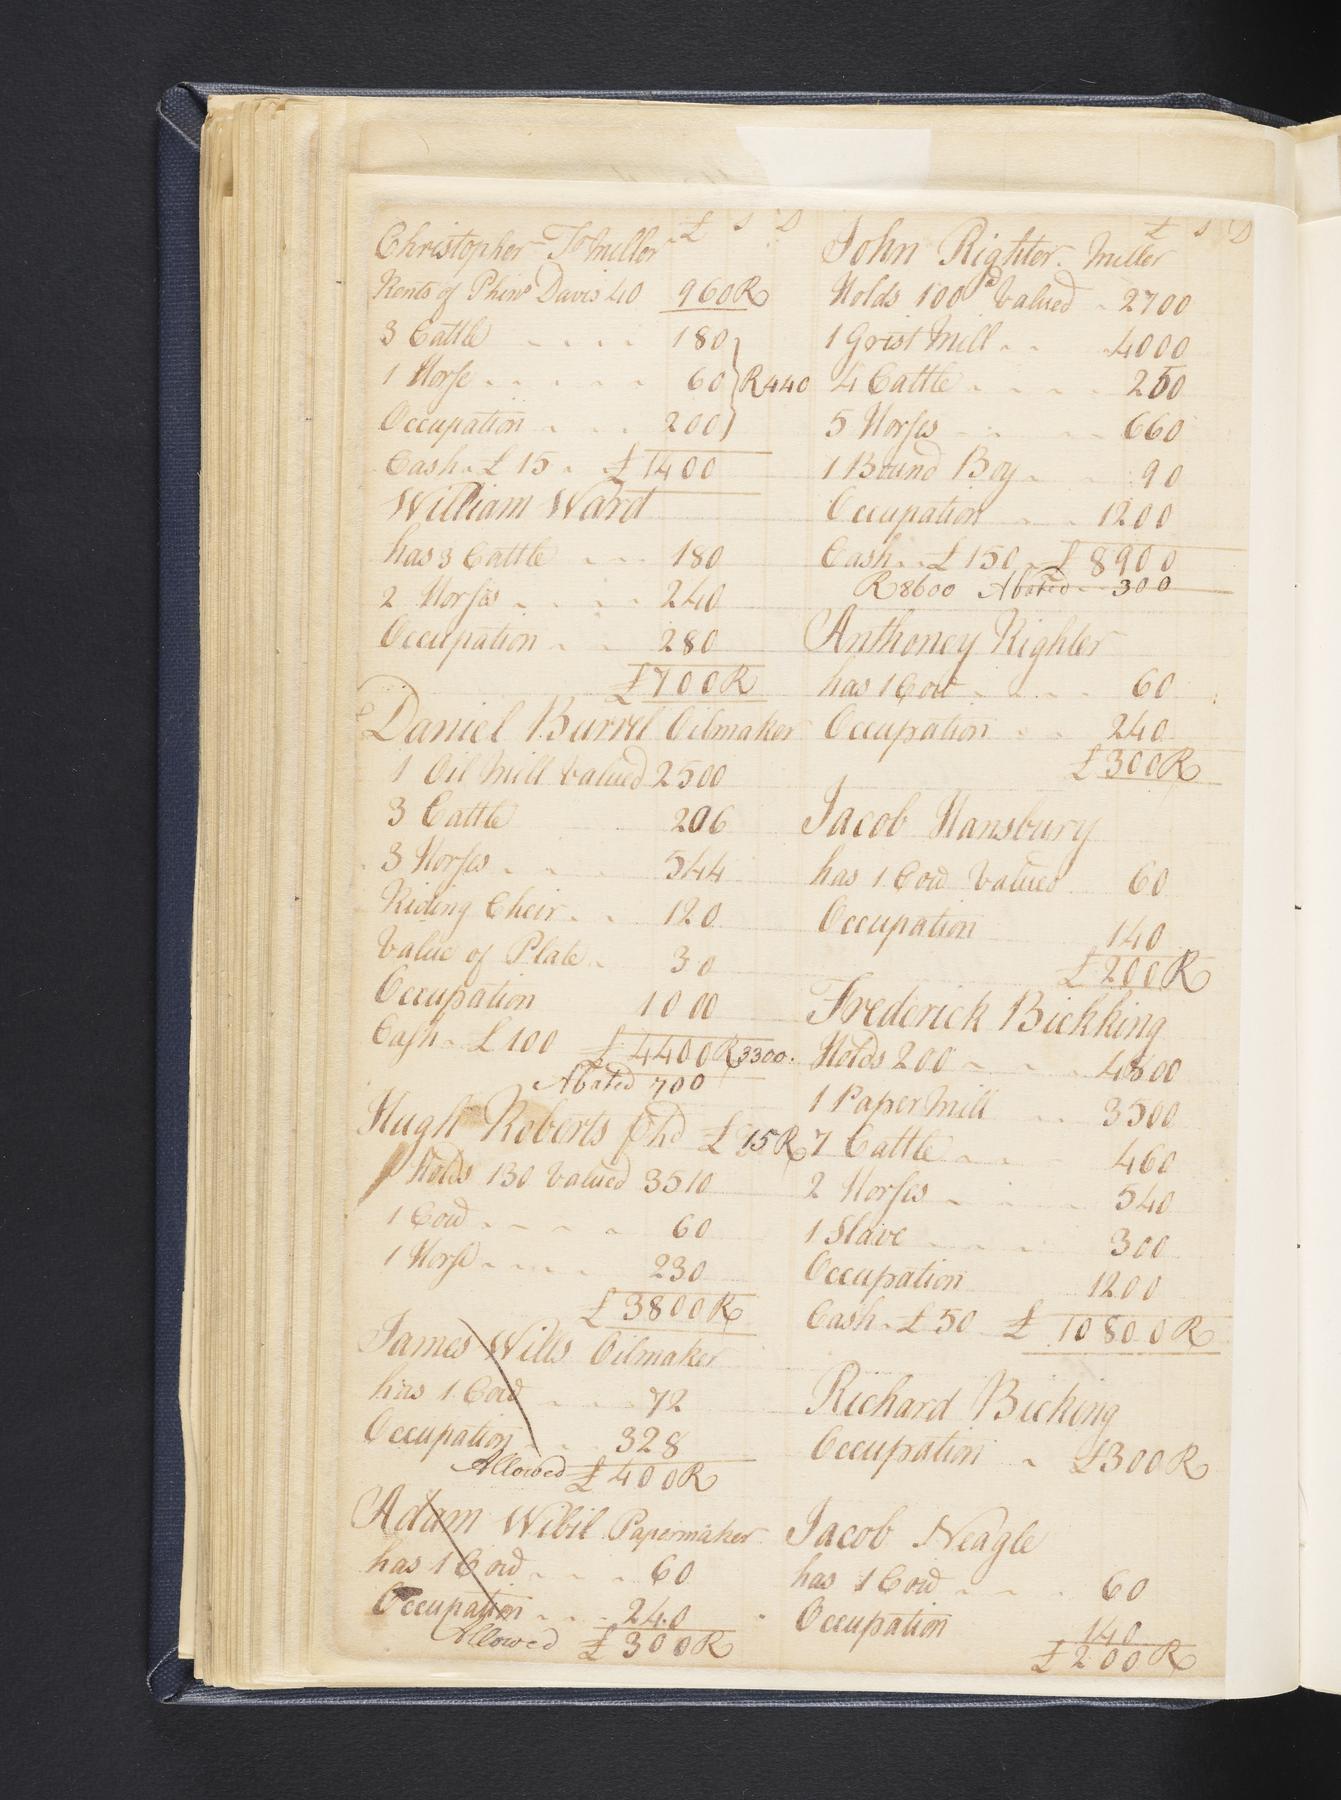 £ s D
Christopher To Miller
Rents of Phins Davis 40 960R
3 Cattle 180
1 Horse 60 R440
Occupation 200
Cash £ 15 £ 1400
William Ward
has 3 Cattle 180
2 Horses 240
Occupation 280
£ 700R
Daniel Burrel Oilmaker
1 Oil Mill Valued 2500
3 Cattle 206
3 Horses 544
Riding Cheir 120
Value of Plate 30
Occupation 1000
Cash £ 100 £ 4400 R3300
Abated 700
Hugh Roberts £ 15R
Holds 130 Valued 3510
1 Cow 60
1 Horse 230
£ 3800R
James Wills Oilmaker
has 1 Cow 72
Occupation 328
Allowed £ 400R
Adam Wibil Papermaker
has 1 Cow 60
Occupation 240
Allowed £ 300R
£ s D
John Righter Miller
Holds 100 Valued 2700
1 Grist Mill 4000
4 Cattle 250
5 Horses 660
1 Bound Boy 90
Occupation 1200
Cash £ 150 £ 8900
R8600 Abated 300
Anthoney Righter
has 1 Cow 60
Occupation 240
£ 300R
Jacob Hansbury
has 1 Cow Valued 60
Occupation 140
£ 200R
Frederick Bickking
Holds 200 4800
1 Paper Mill 3500
7 Cattle 460
2 Horses 540
1 Slave 300
Occupation 1200
Cash £ 50 £ 10800R
Richard Bicking
Occupation £300R
Jacob Neagle
has 1 Cow 60
Occupation 140
£ 200R